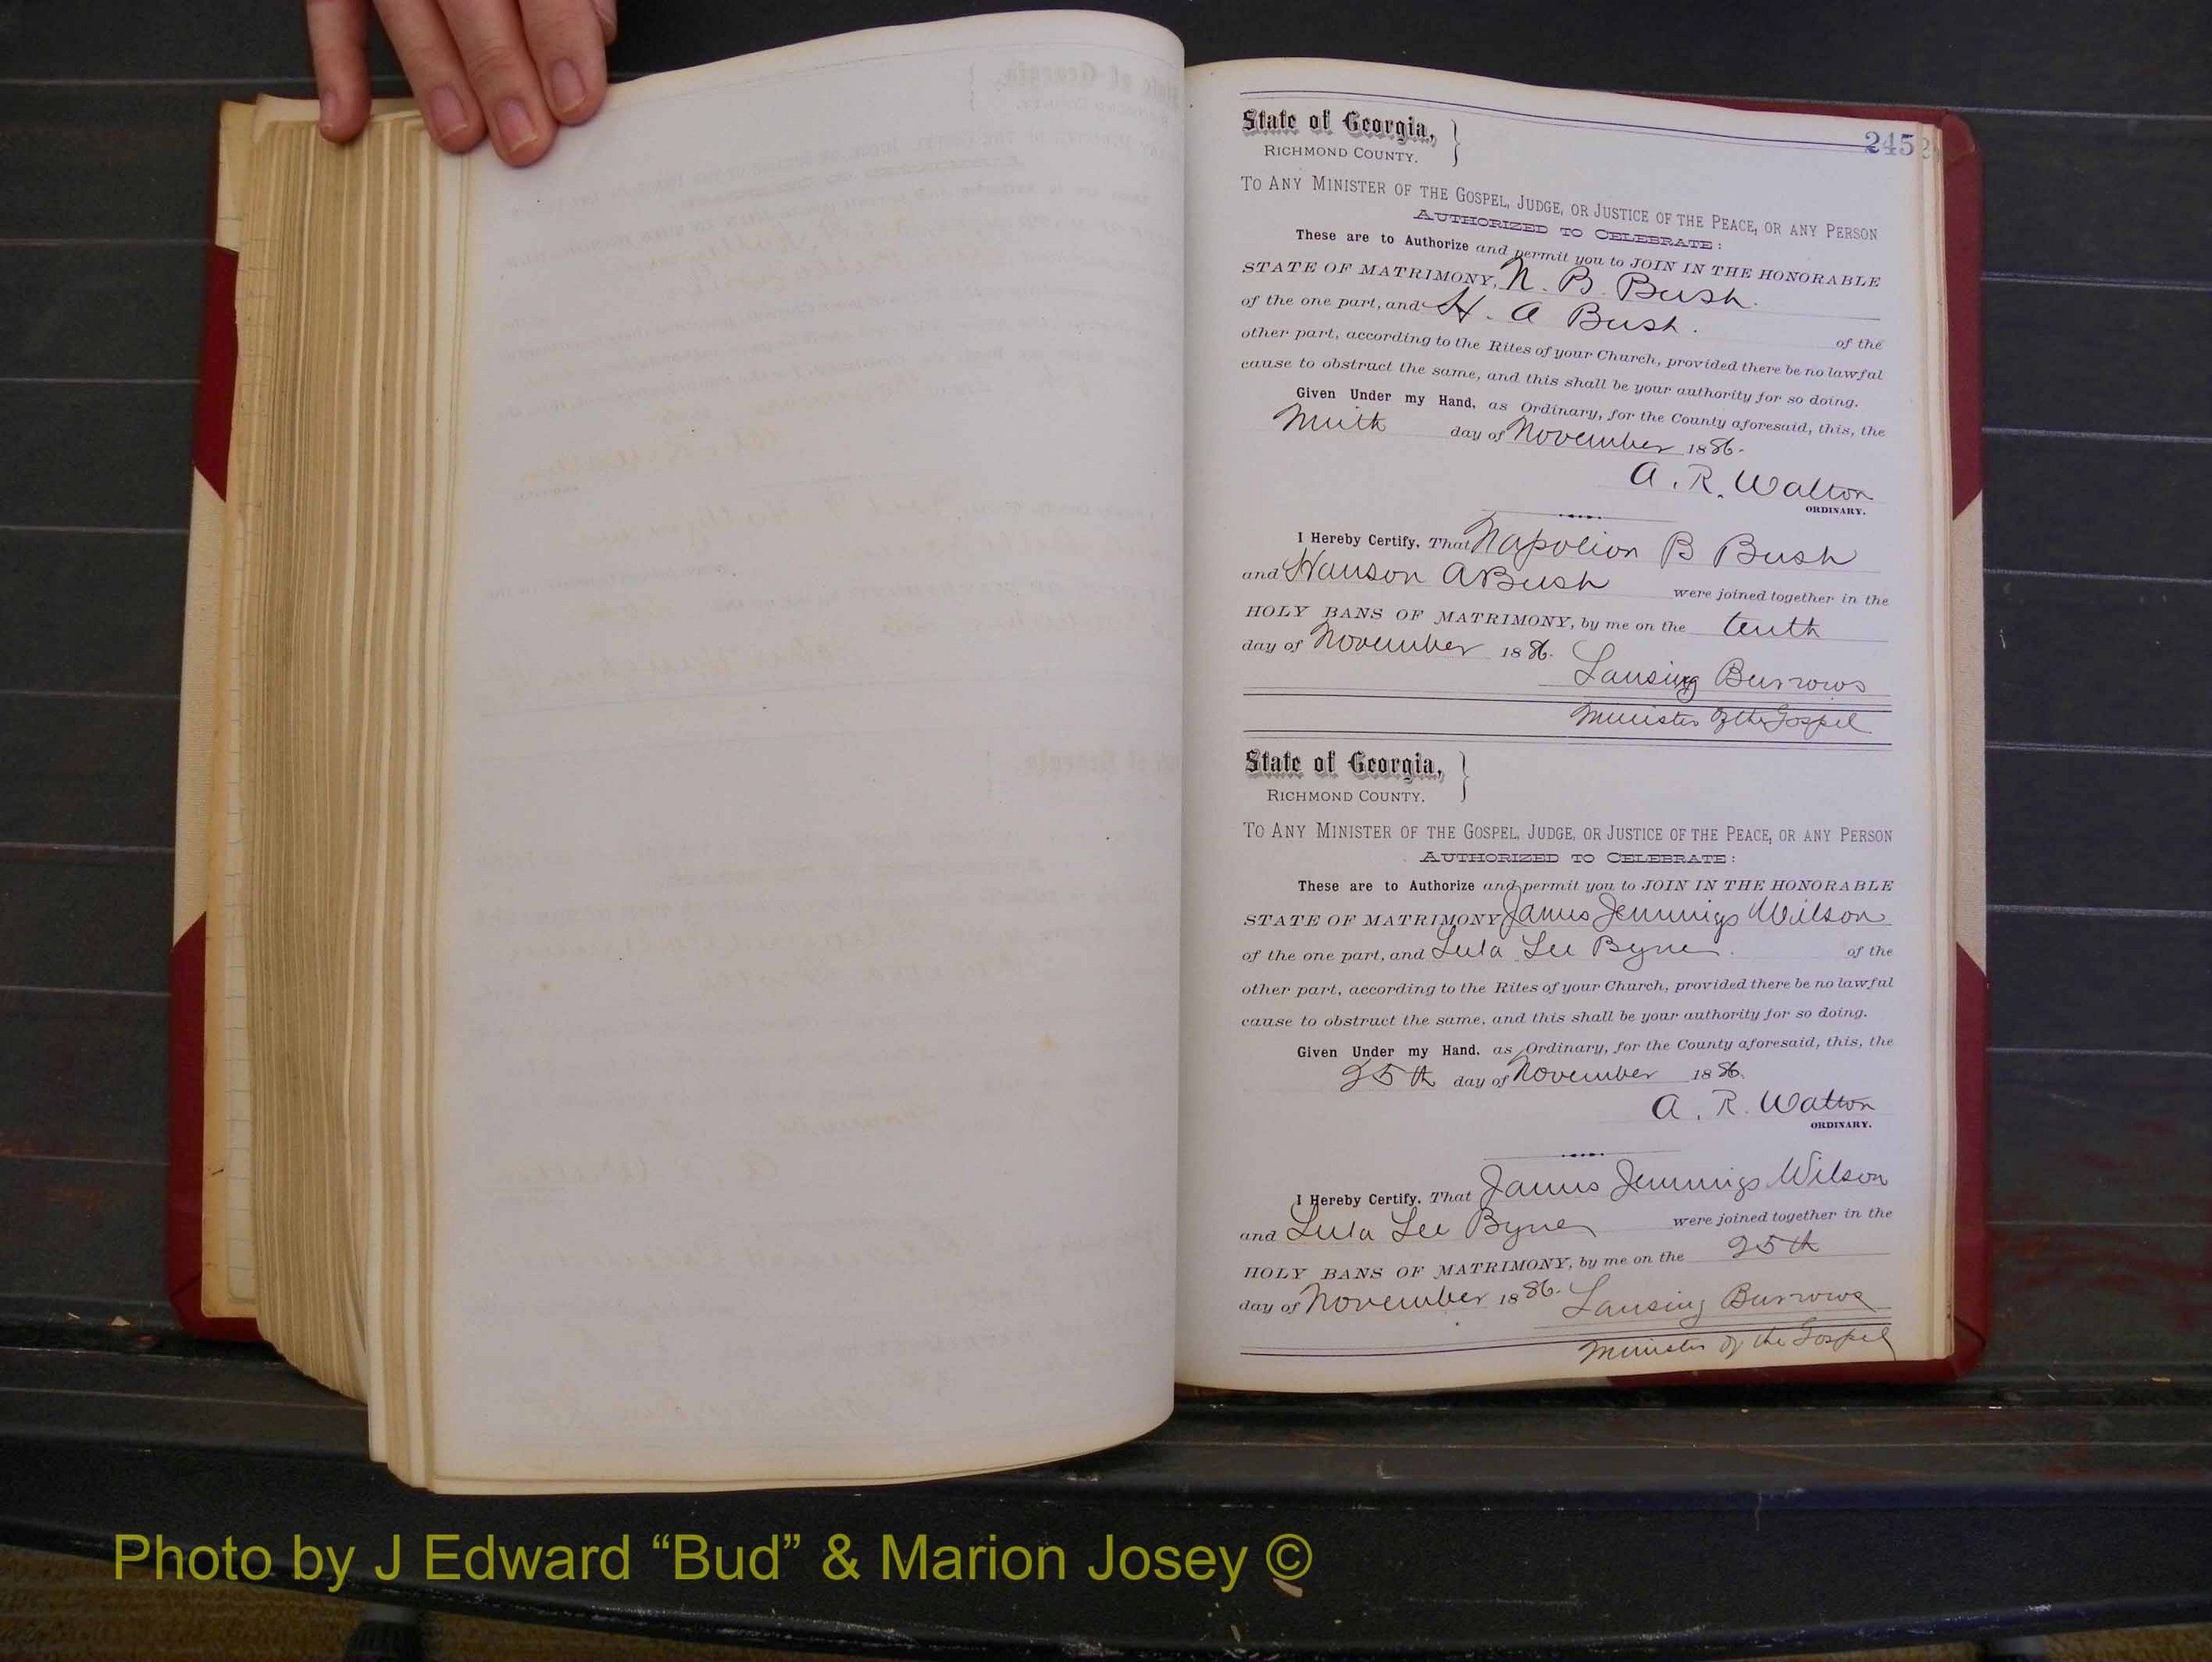 245
State of Georgia,
RICHMOND COUNTY.
TO ANY MINISTER OF THE GOSPEL, JUDGE, OR JUSTICE OF THE PEACE, OR ANY PERSON
AUTHORIZED TO CELEBRATE:
These are to Authorize and permit you to JOIN IN THE HONORABLE
STATE OF MATRIMONY, N. B. Bush.
of the one part, and H. A Bush. of the
other part, according to the Rites of your Church, provided there be no lawful
cause to obstruct the same, and this shall be your authority for so doing.
Given Under my Hand, as Ordinary, for the County aforesaid, this, the
Ninth day of November 1886.
A. R. Walton
ORDINARY.
I Hereby Certify, That Napolion B Bush
and Hanson A Bush were joined together in the
HOLY BANS OF MATRIMONY, by me on the tenth
day of November 1886. Lansing Burrows
Minister of the Gospel
State of Georgia,
RICHMOND COUNTY.
TO ANY MINISTER OF THE GOSPEL, JUDGE, OR JUSTICE OF THE PEACE, OR ANY PERSON
AUTHORIZED TO CELEBRATE:
These are to Authorize and permit you to JOIN IN THE HONORABLE
STATE OF MATRIMONY James Jennings Wilson
of the one part, and Lula Lee Byne. of the
other part, according to the Rites of your Church, provided there be no lawful
cause to obstruct the same, and this shall be your authority for so doing.
Given Under my Hand, as Ordinary, for the County aforesaid, this, the
25th day of November 1886.
A. R. Walton
ORDINARY.
I Hereby Certify, That James Jennings Wilson
and Lula Lee Byne were joined together in the
HOLY BANS OF MATRIMONY, by me on the 25th
day of November 1886. Lansing Burrows
Minister of the Gospel
Photo by J Edward “Bud” & Marion Josey ©